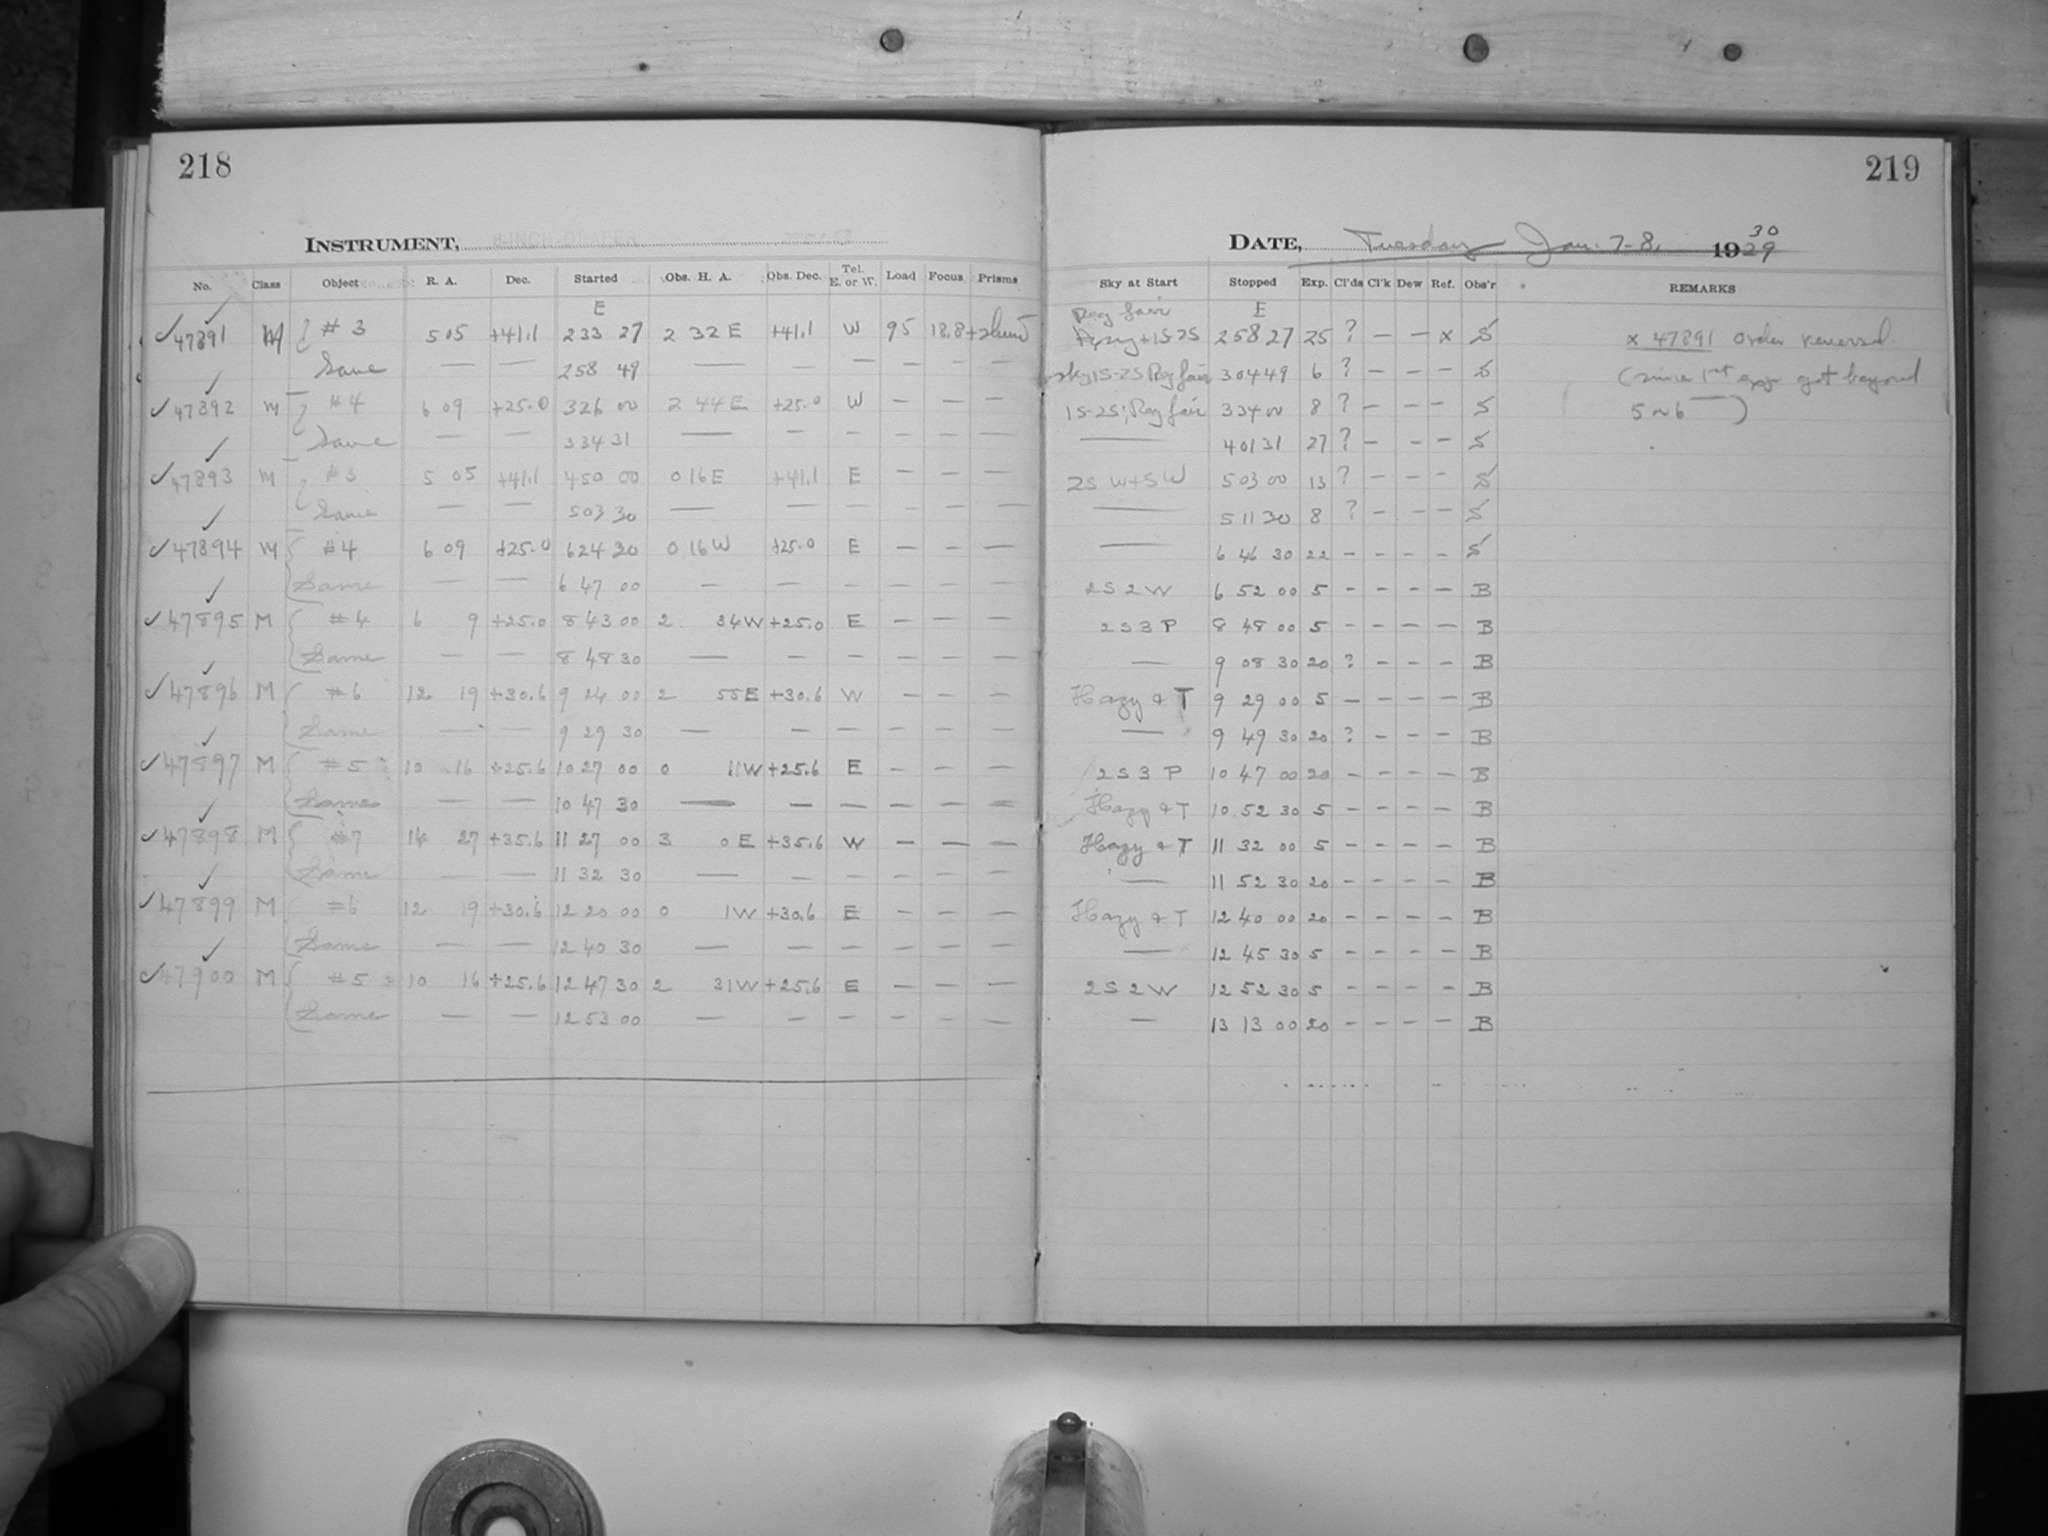 218
219
INSTRUMENT, 8-INCH DRAPER
DATE, Tuesday Jan. 7-8, 1929 30
No. Class Object R. A. Dec. Started Obs. H. A. Obs. Dec. Tel. E. or W. Load Focus Prisms Sky at Start Stopped Exp. Cl'ds Cl'k Dew Ref. Obs'r REMARKS
E Reg fair E
✓ 47891 M # 3 5 05 +41.1 2 33 27 2 32 E +41.1 W 95 18.8 +1S-2S 2 58 27 25 ? — — x S x 47891 order reversed
Same — — 2 58 49 — — — — — — sky 1S-2S Reg fair 3 04 49 6 ? — — — S (since 1st exp got beyond
✓ 47892 M #4 6 09 +25.0 3 26 00 2 44 E +25.0 W — — — 1S-2S; Reg fair 3 34 00 8 ? — — — S 5 m 6)
Same — — 3 34 31 — — — — — — — 4 01 31 27 ? — — — S
✓ 47893 M #3 5 05 +41.1 4 50 00 0 16 E +41.1 E — — — 2S W+SW 5 03 00 13 ? — — — S
Same — — 5 03 30 — — — — — — — 5 11 30 8 ? — — — S
✓ 47894 M #4 6 09 +25.0 6 24 30 0 16 W +25.0 E — — — — 6 46 30 22 — — — — S
Same — — 6 47 00 — — — — — — 2 S 2 W 6 52 00 5 — — — — B
✓ 47895 M #4 6 9 +25.0 8 43 00 2 34 W +25.0 E — — — 2 S 3 P 8 48 00 5 — — — — B
Same — — 8 48 30 — — — — — — — 9 08 30 20 ? — — — B
✓ 47896 M #6 12 19 +30.6 9 24 00 2 55 E +30.6 W — — — Hazy & T 9 29 00 5 — — — — B
Same — — 9 29 30 — — — — — — — 9 49 30 20 ? — — — B
✓ 47897 M #5 10 16 +25.6 10 27 00 0 11 W +25.6 E — — — 2 S 3 P 10 47 00 20 — — — — B
Same — — 10 47 30 — — — — — — Hazy & T 10 52 30 5 — — — — B
✓ 47898 M #7 14 27 +35.6 11 27 00 3 0 E +35.6 W — — — Hazy & T 11 32 00 5 — — — — B
Same — — 11 32 30 — — — — — — — 11 52 30 20 — — — — B
✓ 47899 M #6 12 19 +30.6 12 20 00 0 1 W +30.6 E — — — Hazy & T 12 40 00 20 — — — — B
Same — — 12 40 30 — — — — — — — 12 45 30 5 — — — — B
✓ 47900 M #5 10 16 +25.6 12 47 30 2 31 W +25.6 E — — — 2 S 2 W 12 52 30 5 — — — — B
Same — — 12 53 00 — — — — — — — 13 13 00 20 — — — — B